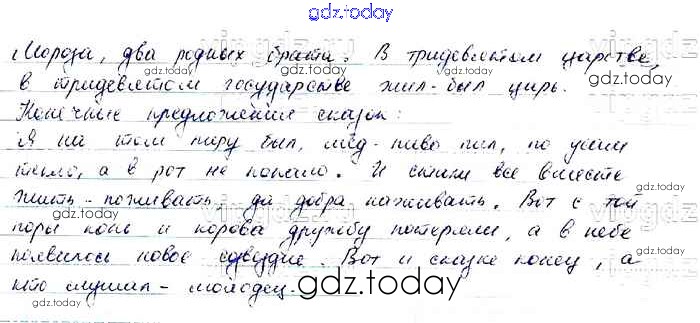 gdz.today
Мороза, два родных брата. В тридевятом царстве,
в тридевятом государстве жил-был царь.
Конечные предложения сказок:
Я на том пиру был, мёд-пиво пил, по усам
текло, а в рот не попало. И стали все вместе
жить-поживать да добра наживать. Вот с той
поры конь и корова дружбу потеряли, а в небе
появилось новое созвездие. Вот и сказке конец, а
кто слушал - молодец.
gdz.today